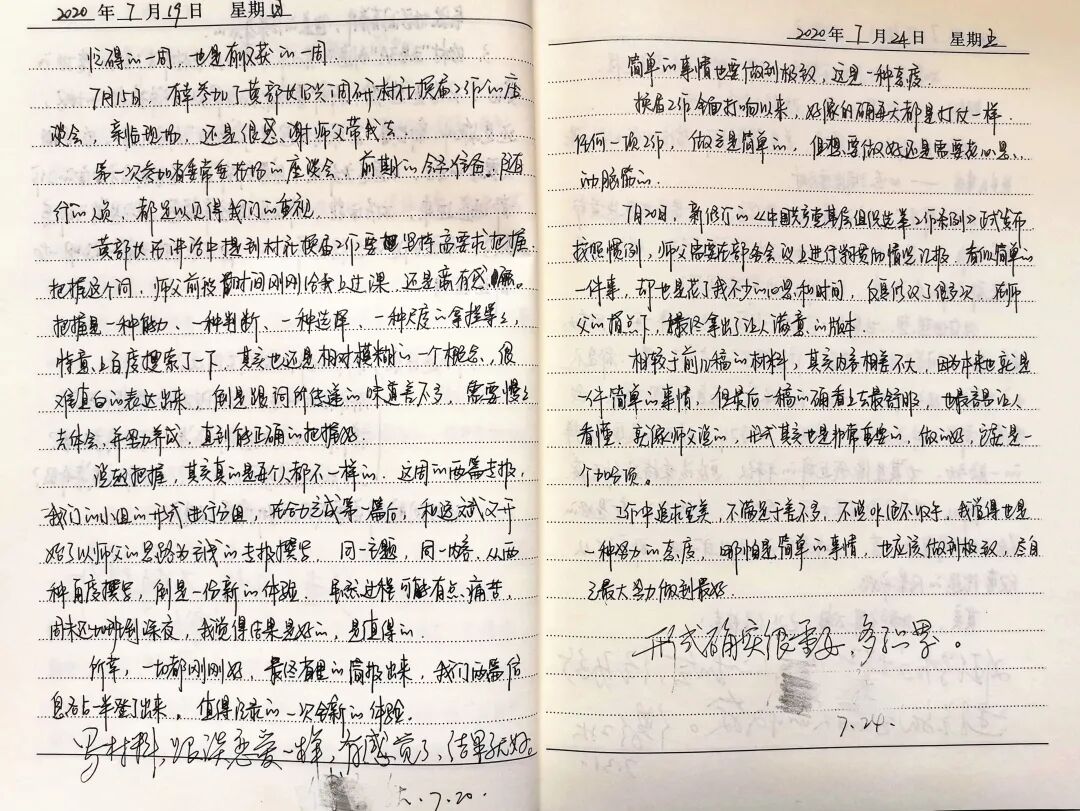 2020年7月19日 星期日
忙碌的一周,也是有收获的一周
7月15日,有幸参加了黄部长召开调研村社换届工作的座
谈会,亲临现场,还是很感谢师父带我去
第一次参加省委常委在场的座谈会,前期的会务准备、随
行的人员,都足以见得我们的重视。
黄部长在讲话中提到村社换届工作要坚持高要求把握
把握这个词,师父前段时间刚刚给我上过课,还是蛮有感
把握是一种能力、一种判断、一种选择、一种尺度的拿捏等等
特意上百度搜索了一下,其实也还是相对模糊的一个概念,很
难直白的表达出来,倒是跟词所传递的味道差不多,需要慢慢
去体会,并努力养成,直到能正确的把握好.
说起把握,其实真的是每个人都不一样的.这周的两篇专报,
我们以小组的形式进行分组,在合力完成第一篇后,和远斌又开
始了以师父的思路为主线的专报撰写.同一主题,同一内容,从两
种角度撰写,倒是一份新的体验.虽然过程可能有点痛苦,
周末还加班到深夜,我觉得结果是好的,是值得的.
所幸,一切都刚刚好,最终有里的简报出来,我们两篇信
息各占一半登了出来。值得记录的一次全新的体验.
写材料,跟谈恋爱一样,有感觉了,结果就好。
7.20.
2020年7月24日 星期五
简单的事情也要做到极致,这是一种态度
换届工作全面打响以来,好像的确每天都是打仗一样.
任何一项工作,做完是简单的,但想要做好还是需要花心思、
动脑筋的.
7月20日,新修订的《中国共产党基层组织选举工作条例》正式发布
按照惯例,师父需要在部务会议上进行学习贯彻情况汇报,看似简单的
一件事,却也是花了我不少的心思和时间,反复修改了很多次,在师
父的指点下,最终拿出了让人满意的版本.
相较于前几稿的材料,其实内容相差不大,因为本来也就是
一件简单的事情,但最后一稿的确看上去最舒服,也最容易让人
看懂.就像师父说的,形式其实也是非常重要的,做的好,它是一
个加分项。
工作中追求完美,不满足于差不多,不说
一种努力的态度,哪怕是简单的事情,也应该做到极致,尽自
己最大努力做到最好.
形式确实很重要,多积累。
7.24.